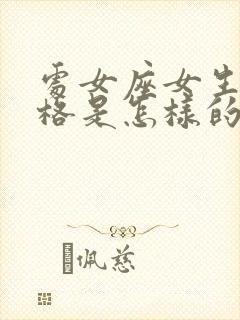 處女座女生
格是怎樣的
佩慈